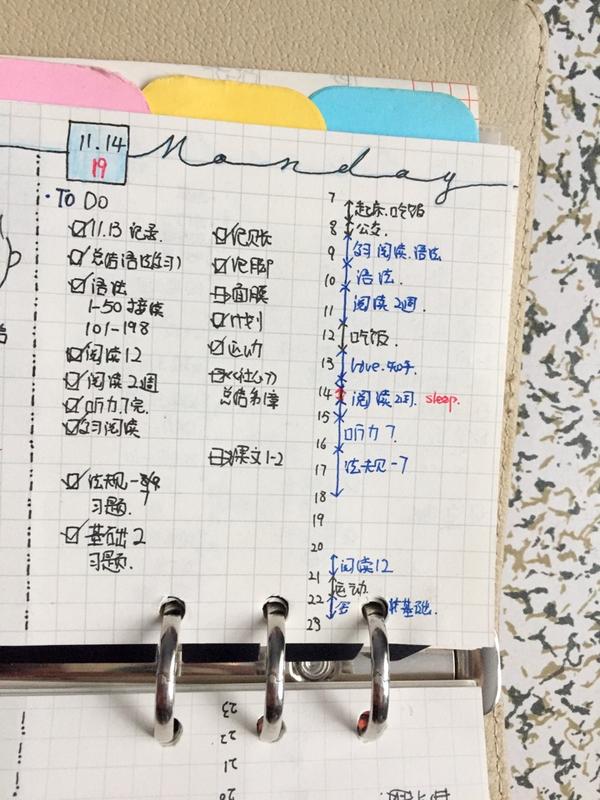 11.14
19
Monday
·To Do
11.13 记录.
总结语法(复习)
语法
1-50 接续
101-198
阅读12
阅读2週
听力7完.
复习阅读
法规-
习题.
基础2
习题.
记账
记脚
面膜
计划
运动
总结
课文1-2
7
起床.吃饭
8
公交.
9
复习 阅读.语法
10
语法.
11
阅读2週.
12
吃饭.
13
love.知乎.
14
阅读2週. sleep.
15
16
听力7
17
法规-7
18
19
20
阅读12
21
运动.
22
基础.
23
23
22
21
20